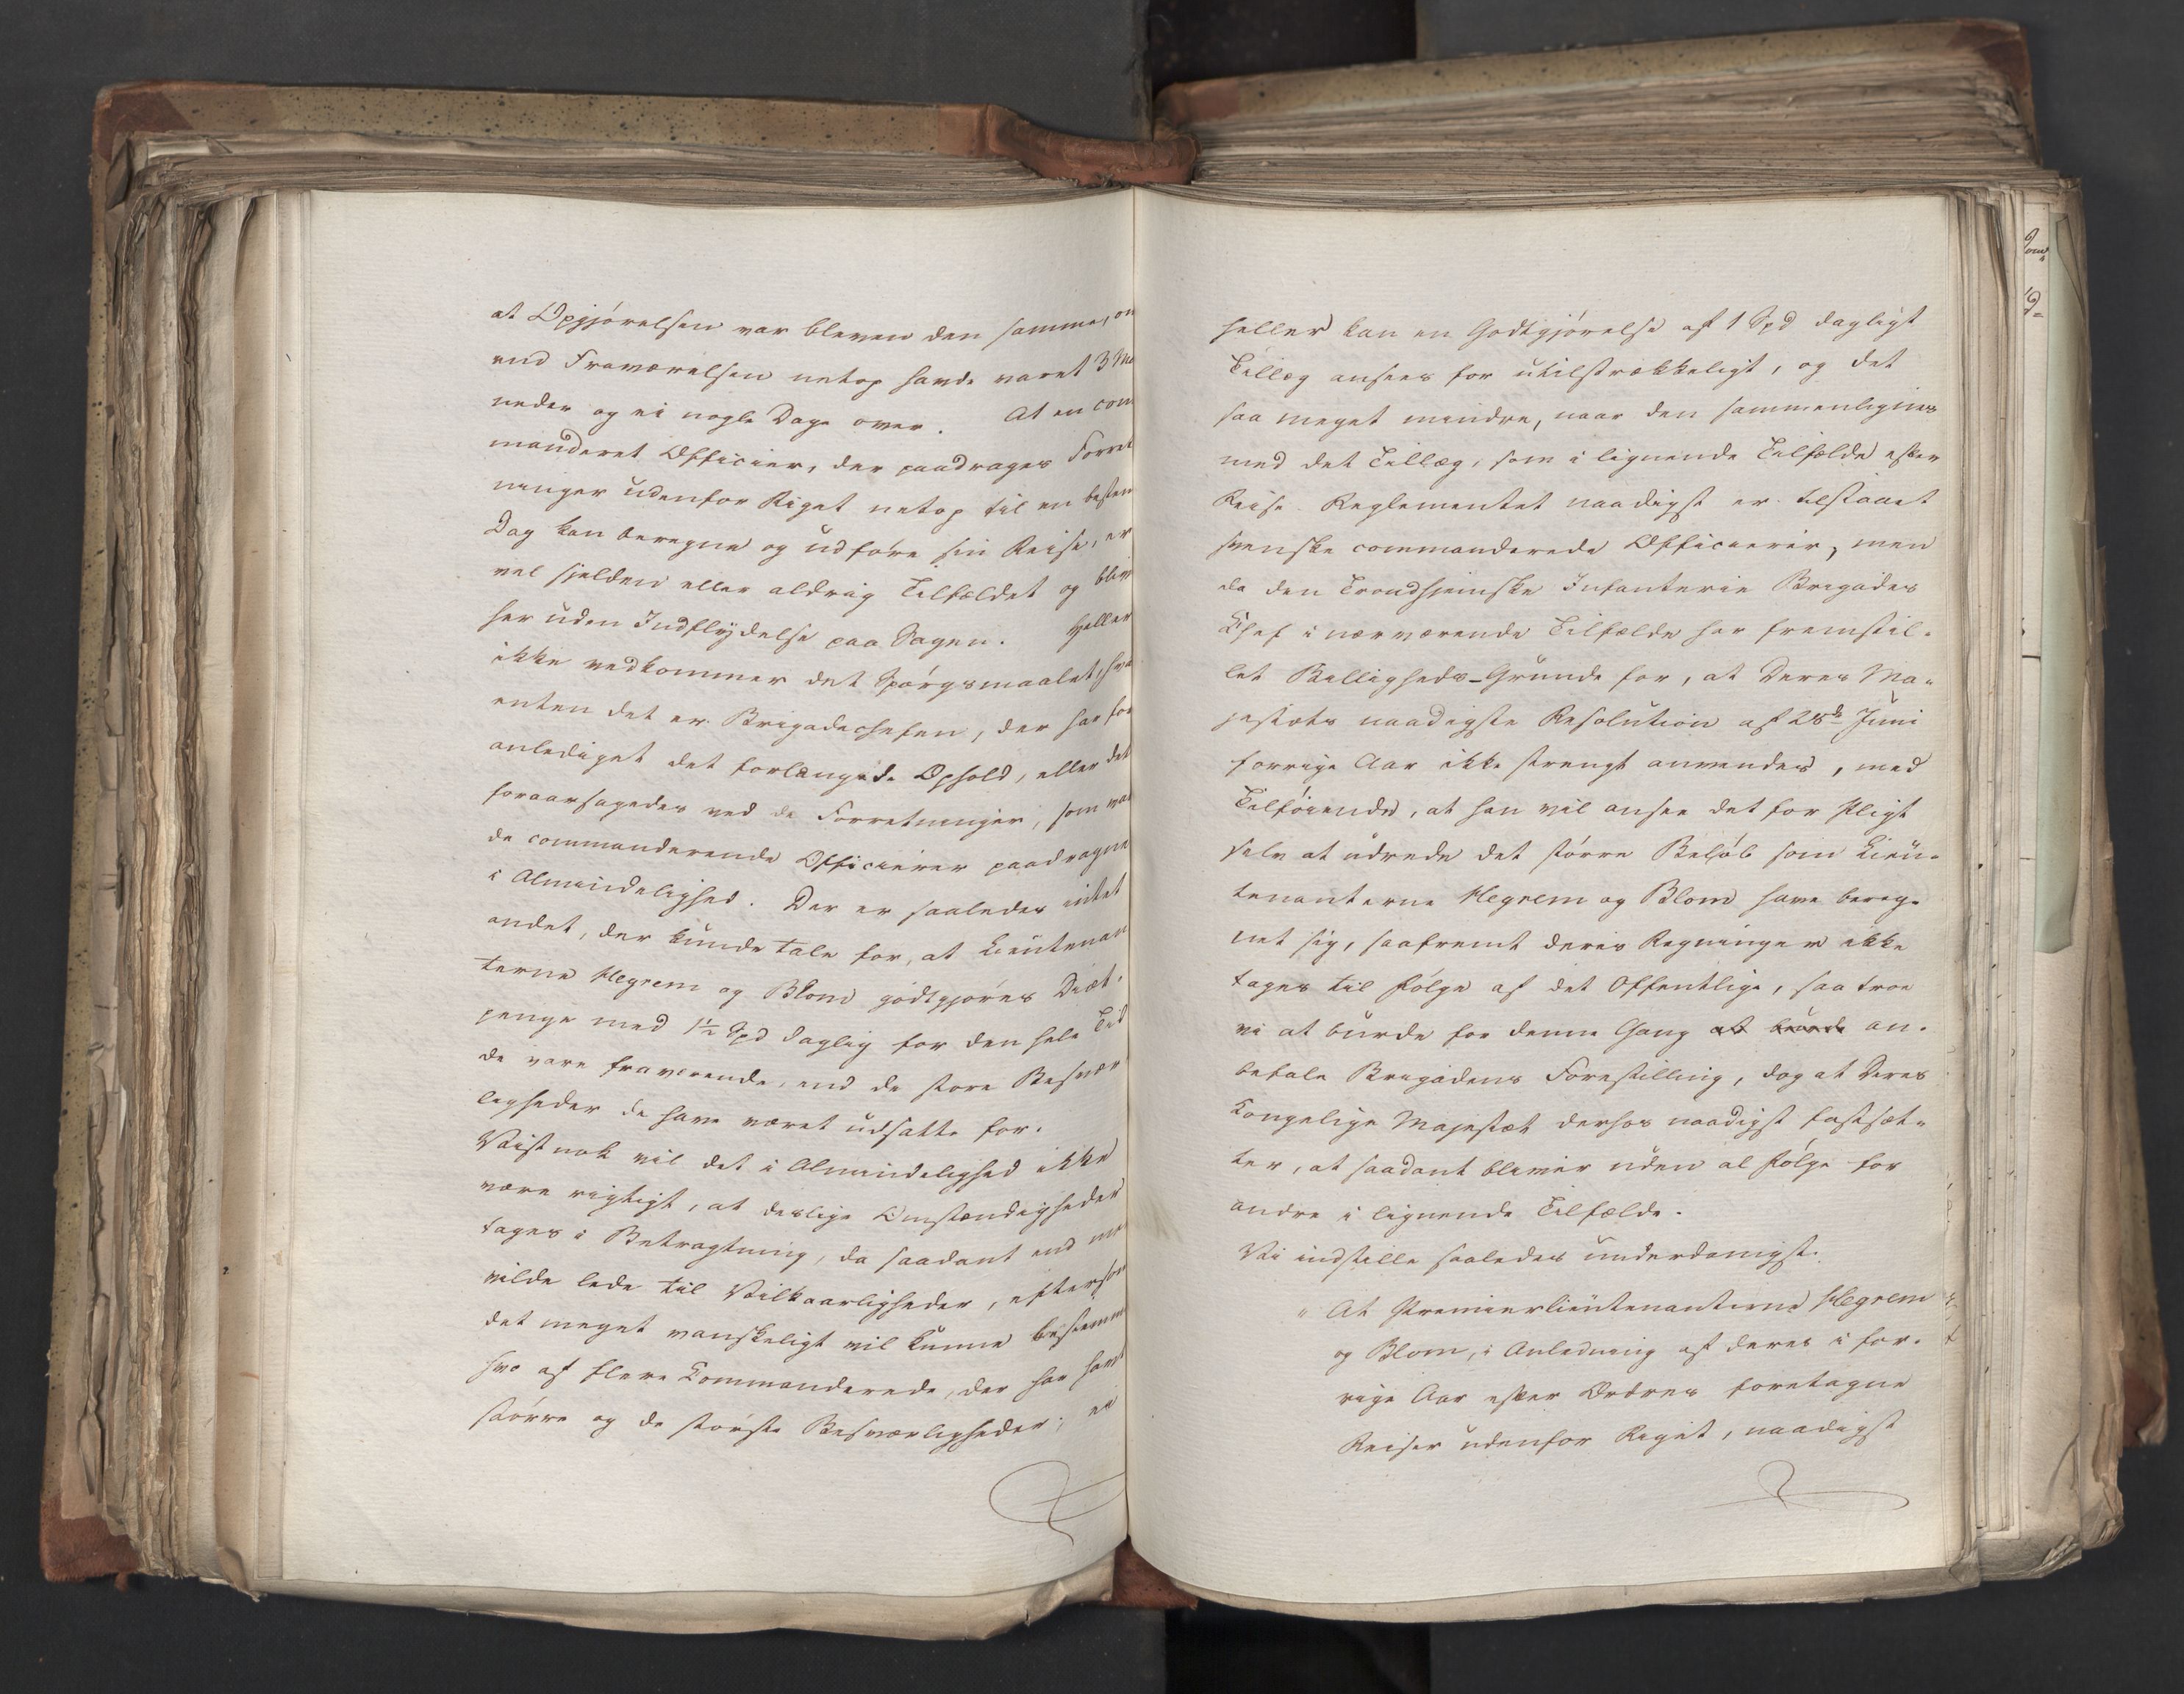 at Opgjørelsen var bleven den samme, om
end Fraværelsen netop havde varet 3 Ma
neder og ei nogle Dage over. At en com
manderet Officier, der paadrages Forret
ninger udenfor Riget netop til en bestem
Dag kan beregne og udføre sin Reise, er
vel sjelden eller aldrig Tilfældet og bliv
her uden Indflydelse paa Sagen. Heller
ikke vedkommer det Spørgsmaalet, hva
enten det er Brigadechefen, der har for
anlediget det forlængede Ophold, eller det
foraarsagedes ved de Forretninger, som var
de commanderende Officierer paadragne
i Almindelighed. Der er saaledes intet
andet, der kunde tale for, at Lieutenan
terne Hegrem og Blom godtgjøres Diæt-
penge med 1½ Spd daglig for den hele Tid
de vare fraværende, end de store Besvær
ligheder de have været udsatte for.
Vistnok vil det i Almindelighed ikke
være rigtigt, at deslige Omstændigheder
tages i Betragtning, da saadant end me
vilde lede til Vilkaarligheder, eftersom
det meget vanskeligt vil kunne bestemm
hvo af flere Commanderede, der har havt
større og de største Besværligheder; ei
heller kan en Godtgjørelse af 1 Spd dagligt
Tillæg ansees for utilstrækkeligt, og det
saa meget mindre, naar den sammenlignes
med det Tillæg, som i lignende Tilfælde efter
Reise-Reglementet naadigst er tilstaaet
svenske commanderede Officierer, men
da den Trondhjemske Infanterie Brigades
Chef i nærværende Tilfælde har fremstil-
let Billigheds-Grunde for, at Deres Ma-
jestæts naadigste Resolution af 28de Juni
forrige Aar ikke strengt anvendes, med
Tilføiende, at han vil ansee det for Pligt
selv at udrede det større Beløb som Lieu-
tenanterne Hegrem og Blom have bereg-
net sig, saafremt deres Regninger ikke
tages til Følge af det Offentlige, saa troe
vi at burde for denne Gang at burde an-
befale Brigadens Forestilling, dog at Deres
Kongelige Majestæt derhos naadigst fastsæt-
ter, at saadant bliver uden al Følge for
andre i lignende Tilfælde.
Vi indstille saaledes underdanigst:
" At Premierlieutenanterne Hegrem
og Blom, i Anledning af deres i for-
rige Aar efter Ordres foretagne
Reiser udenfor Riget, naadigst